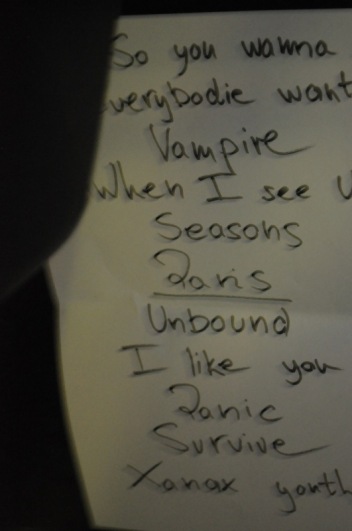 So you wanna
everybodie want
Vampire
When I see U
Seasons
Paris
Unbound
I like you
Panic
Survive
Xanax youth